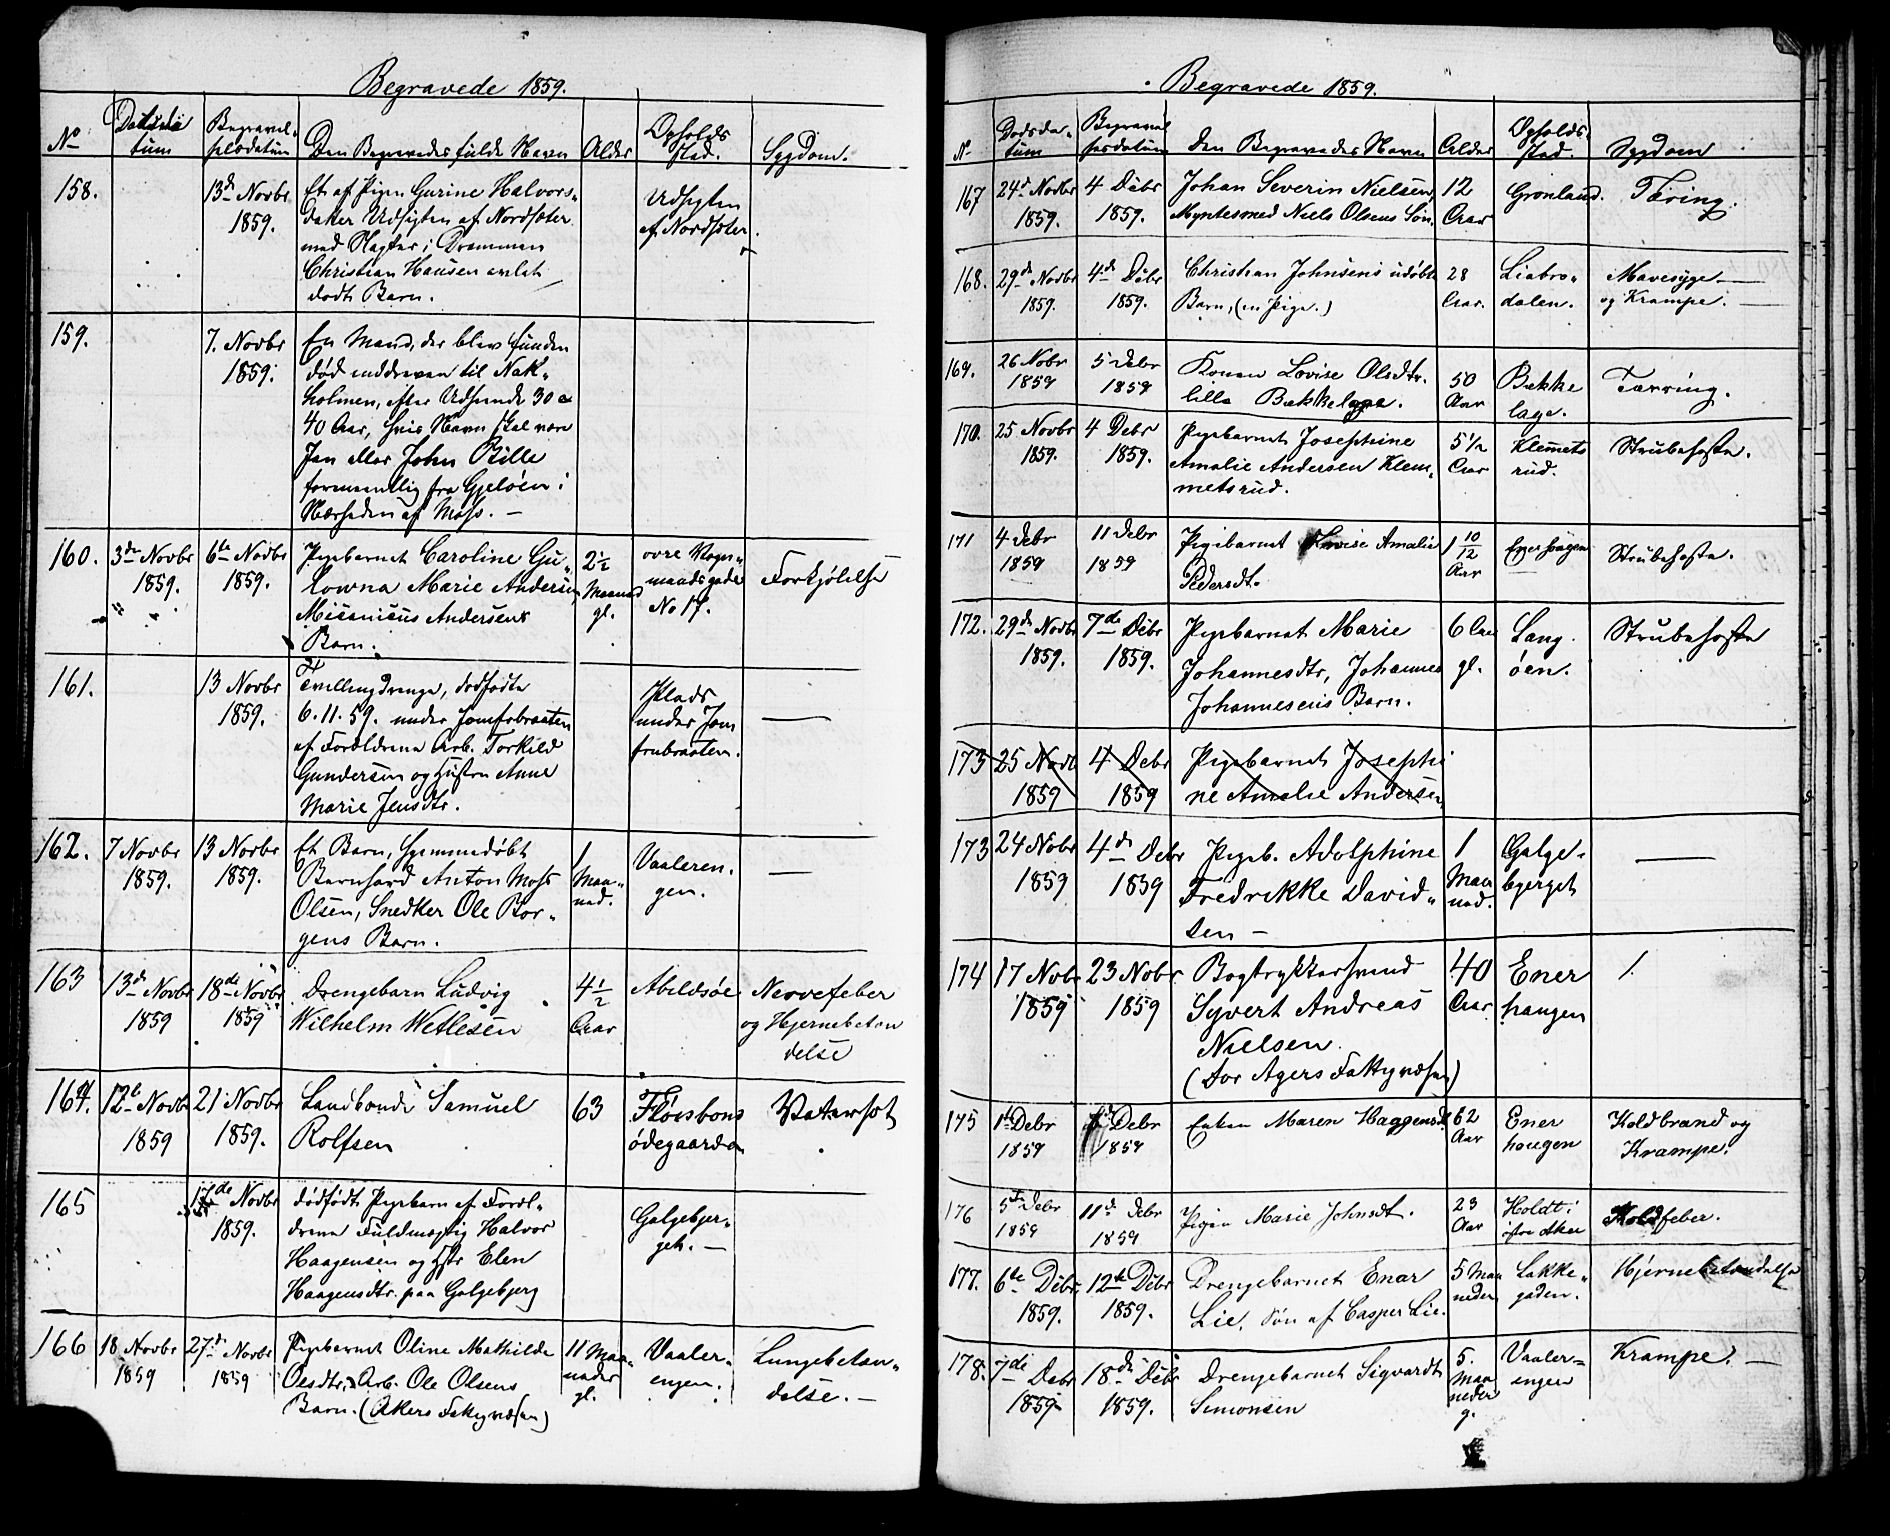 Begravede 1859.
No
Dødsda-
tum
Begravel-
sesdatum
Den Begravedes fulde Navn
Alder
Opholds
sted.
Sygdom.
158.
13de Novbr
1859.
Et af Pigen Gurine Halvors-
datter Udsigten af Nordsæter
med Slagter i Drammen
Christian Hansen avlet
dødt Barn.
Udsigten
af Nordsæter.
159.
7. Novbr
1859.
En Mand, der blev funden
død inddreven til Nak-
holmen, efter Udseende 30 a
40 Aar, hvis Navn skal være
Jan eller John Bille
formeentlig fra Gjeløen i
Nærheden af Moss. —
160.
3die Novbr
1859.
6te Novbr
1859.
Pigebarnet Caroline Gu-
lowna Marie Andersen
Micanicus Andersens
Barn.
2 1/2
Maaned
gl.
ovre Vogn-
mandsgade
No 17.
Forkjølelse
161.
13 Novbr
1859.
Tvillingdrenge, dødfødte
6.11.59. under Jomfrbraaten
af Forældrene Arb. Torkild
Gundersen og Hustru Anne
Marie Jensdtr.
Plads
under Jom
frubraaten.
—
162.
7 Novbr
1859.
13 Novbr
1859.
Et Barn, hjemmedøbt
Bernhard Anton Moss
Olsen, Snedker Ole Bor-
gens Barn.
1
Maa-
ned.
Vaaleren-
gen.
—
163
13de Novbr
1859
18de Novbr
1859
Drengebarn Ludvig
Wilhelm Wetlesen
4 1/2
Aar
Abildsøe
Nervefeber
og Hjernebeten
delse
164.
12te Novbr
1859
21 Novbr
1859.
Landbonde Samuel
Rolfsen
63
Fløisbons
ødegaarden
Vatersot
165
17de Novbr
1859.
dødfødt Pigebarn af Foræl-
drene Fuldmægtig Halvor
Haagensen og Hstr Elen
Haagensdtr. paa Galgebjerg
Galgebjer-
get. —
166
18 Novbr
1859
27de Novbr
1859
Pigebarnet Oline Mathilde
Olsdtr, Arb. Ole Olsens
Barn. (Akers Fattigvæsen)
11 Maa-
neder
gl.
Vaaler-
engen.
Lungebetæn-
delse. —
Begravede 1859.
No
Dødsda-
tum
Begravel
sesdatum
Den Begravedes Navn
Alder
Opholds-
sted.
Sygdom
167
24de Novbr
1859.
4 Debr
1859.
Johan Severin Nielsen,
Myntesmed Niels Olsens Søn.
12
Aar
Grønland.
Tæring.
168.
29de Novbr
1859.
4de Debr
1859.
Christian Johnsens udøbte
Barn, (en Pige.)
28
Aar.
Liabro-
dalen.
Mavesyge —
og Krampe. —
169.
26 Nobr
1859
5 Debr
1859
Konen Lovise Olsdtr.
lille Bækkelage.
50
Aar
Bække
lage.
Tærring.
170.
25 Novbr
1859.
4 Debr
1859.
Pigebarnet Josephine
Amalie Andersen Klem-
metsrud.
5 1/2
Aar
Klemmets
rud.
Strubehoste.
171
4 Debr
1859
11 Debr
1859
Pigebarnet Lovise Amalie
Pedersdt.
1 10/12
Aar
Enerhougen
Strubehoste.
172.
29de Novbr
1859.
7de Debr
1859.
Pigebarnet Marie
Johannesdtr, Johannes
Johannesens Barn.
6 Aar
gl.
Lang-
øen.
Strubehoste
173
25 Novb
1859
4 Debr
1859
Pigebarnet Josephi
ne Amalie Andersen
173
24 Nobr
1859
4de Debr
1859
Pigeb. Adolphine
Fredrikke David-
sen —
1
Maa
ned.
Galge-
bjerget
—
174
17 Nobr
1859
23 Nobr
1859
Bogtrykkersvend
Syvert Andreas
Nielsen.
(for Agers Fattigvæsen)
40
Aar
Ener
haugen
1.
175
1ste Debr
1859
Debr
1859
Enken Maren Haggensd.
62
Aar
Ener
haugen
Koldbrand og
Krampe.
176
5te Debr
1859
11de Debr
1859
Pigen Marie Johnsdt.
23
Aar
Holdt i
østre Aker
Koldfeber.
177.
6te Debr.
1859.
12te Debr
1859.
Drengebarnet Enar
Lie, Søn af Casper Lie.
5 Maa
neder
Lakke-
gaden.
Hjernebetændelse
178.
7de Debr
1859
18de Debr
1859.
Drengebarnet Sigvardt
Simonsen
5.
Maa
neder
g.
Vaaler-
engen
Krampe. —